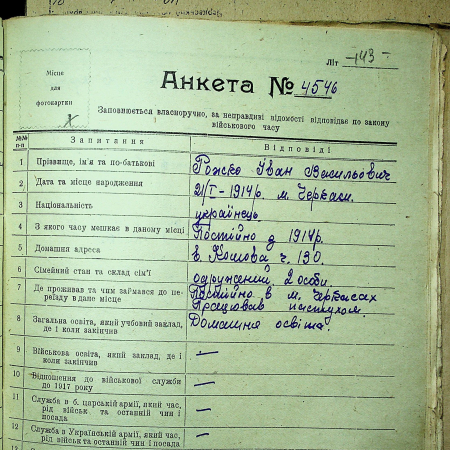 Літ —143—
Місце
для
фотокартки
X
Анкета № 4546
Заповнюється власноручно, за неправдиві відомості відповідає по закону
військового часу
№№ п-п Запитання Відповіді
1 Прізвище, ім'я та по-батькові Рожко Іван Васильович
2 Дата та місце народження 2/I–1914р. м. Черкаси.
3 Національність українець
4 З якого часу мешкає в даному місці Постійно з 1914р.
5 Домашня адреса ч. 190.
6 Сімейний стан та склад сім'ї одружений 2 особи.
7 Де проживав та чим займався до пе-
реїзду в дане місце
Постійно в м. Черкасах
Працював пастухом.
8 Загальна освіта, який учбовий заклад,
де і коли закінчив
Домашня освіта.
9 Військова освіта, який заклад, де і
коли закінчив —
10 Відношення до військової служби
до 1917 року —
11 Служба в б. царській армії, який час,
рід військ та останній чин і
посада —
12 Служба в Українській армії, який час,
рід військ та останній чин і посада —